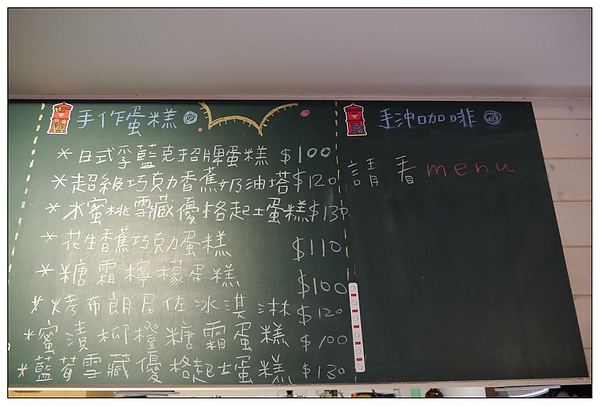 手作蛋糕
*日式孚藍克招牌蛋糕 $100
*超級巧克力香蕉奶油塔 $120
*水蜜桃雪藏優格起士蛋糕 $130
*花生香蕉巧克力蛋糕 $110
*糖霜檸檬蛋糕 $100
*烤布朗尼佐冰淇淋 $120
*蜜漬柳橙糖霜蛋糕 $100
*藍莓雪藏優格起士蛋糕 $130
手沖咖啡
請看menu